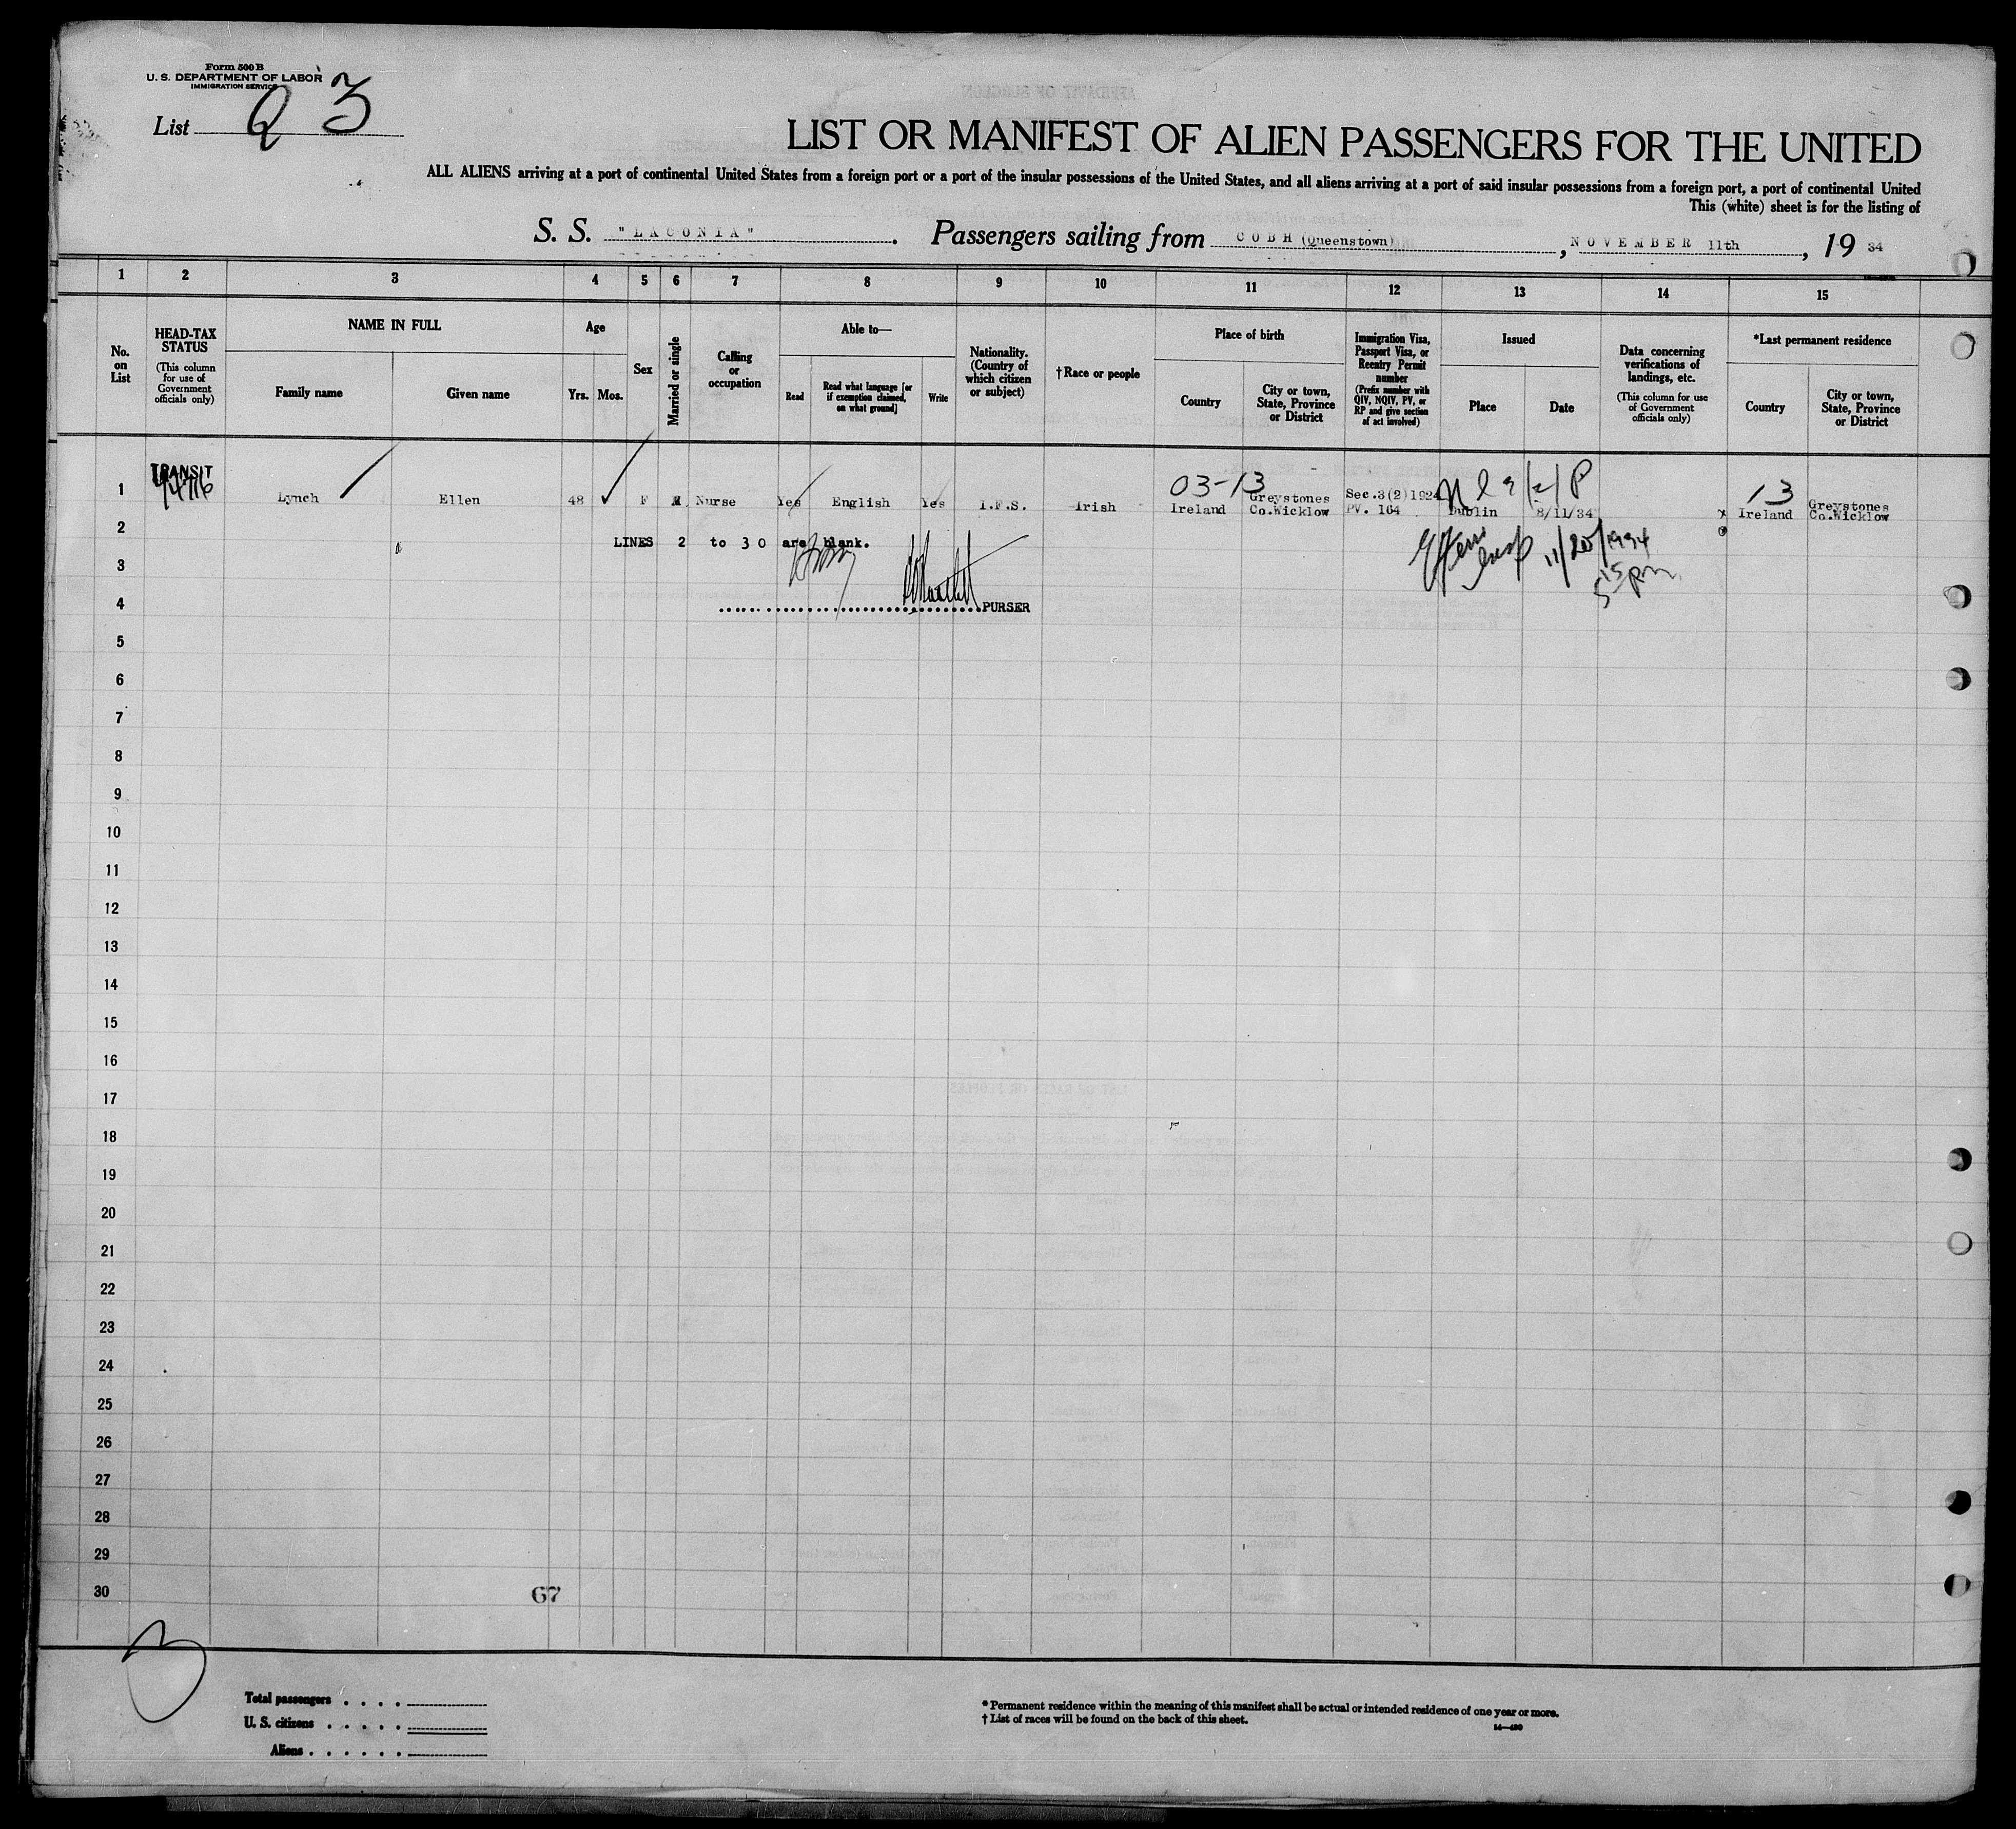 Form 500 B
U. S. DEPARTMENT OF LABOR
IMMIGRATION SERVICE
List 23
LIST OR MANIFEST OF ALIEN PASSENGERS FOR THE UNITED
ALL ALIENS arriving at a port of continental United States from a foreign port or a port of the insular possessions of the United States, and all aliens arriving at a port of said insular possessions from a foreign port, a port of continental United
This (white) sheet is for the listing of
S. S. "LACONIA". Passengers sailing from COBH (Queenstown), NOVEMBER 11th, 19 34
1 2 3 4 5 6 7 8 9 10 11 12 13 14 15
No. on List
HEAD-TAX STATUS
(This column for use of Government officials only)
NAME IN FULL
Family name
Given name
Age
Yrs. Mos.
Sex
Married or single
Calling or occupation
Able to—
Read
Read what language [or if exemption claimed, on what ground]
Write
Nationality. (Country of which citizen or subject)
† Race or people
Place of birth
Country
City or town, State, Province or District
Immigration Visa, Passport Visa, or Reentry Permit number
(Prefix number with QIV, NQIV, PV, or RP and give section of act involved)
Issued
Place
Date
Data concerning verifications of landings, etc.
(This column for use of Government officials only)
*Last permanent residence
Country
City or town, State, Province or District
1 TRANSIT Lynch Ellen 48 F M Nurse Yes English Yes I.F.S. Irish 03-13 Ireland Greystones Co.Wicklow Sec.3(2)1924 PV. 164 Dublin 8/11/34 x 13 Ireland Greystones Co.Wicklow
2 LINES 2 to 30 are blank.
11/20/1934
5 15 pm
3
4 PURSER
5
6
7
8
9
10
11
12
13
14
15
16
17
18
19
20
21
22
23
24
25
26
27
28
29
30
67
3
Total passengers . . . .
U. S. citizens . . . . .
Aliens . . . . . .
* Permanent residence within the meaning of this manifest shall be actual or intended residence of one year or more.
† List of races will be found on the back of this sheet.
14—430